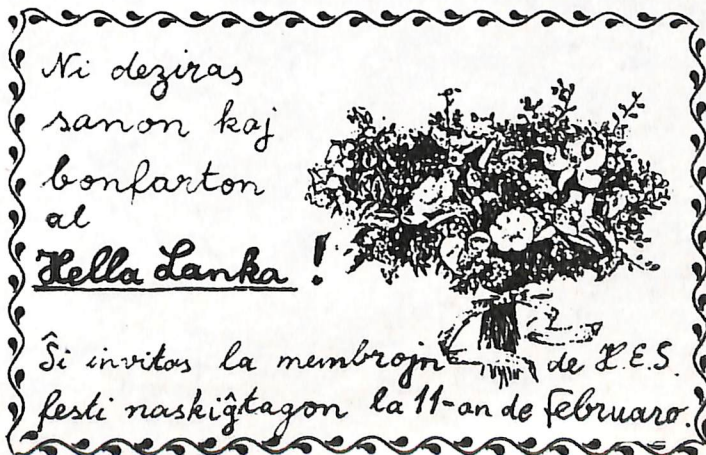 Ni deziras
sanon kaj
bonfarton
al
Hella Lanka !
Ŝi invitas la membrojn de H.E.S.
festi naskiĝtagon la 11-an de februaro.